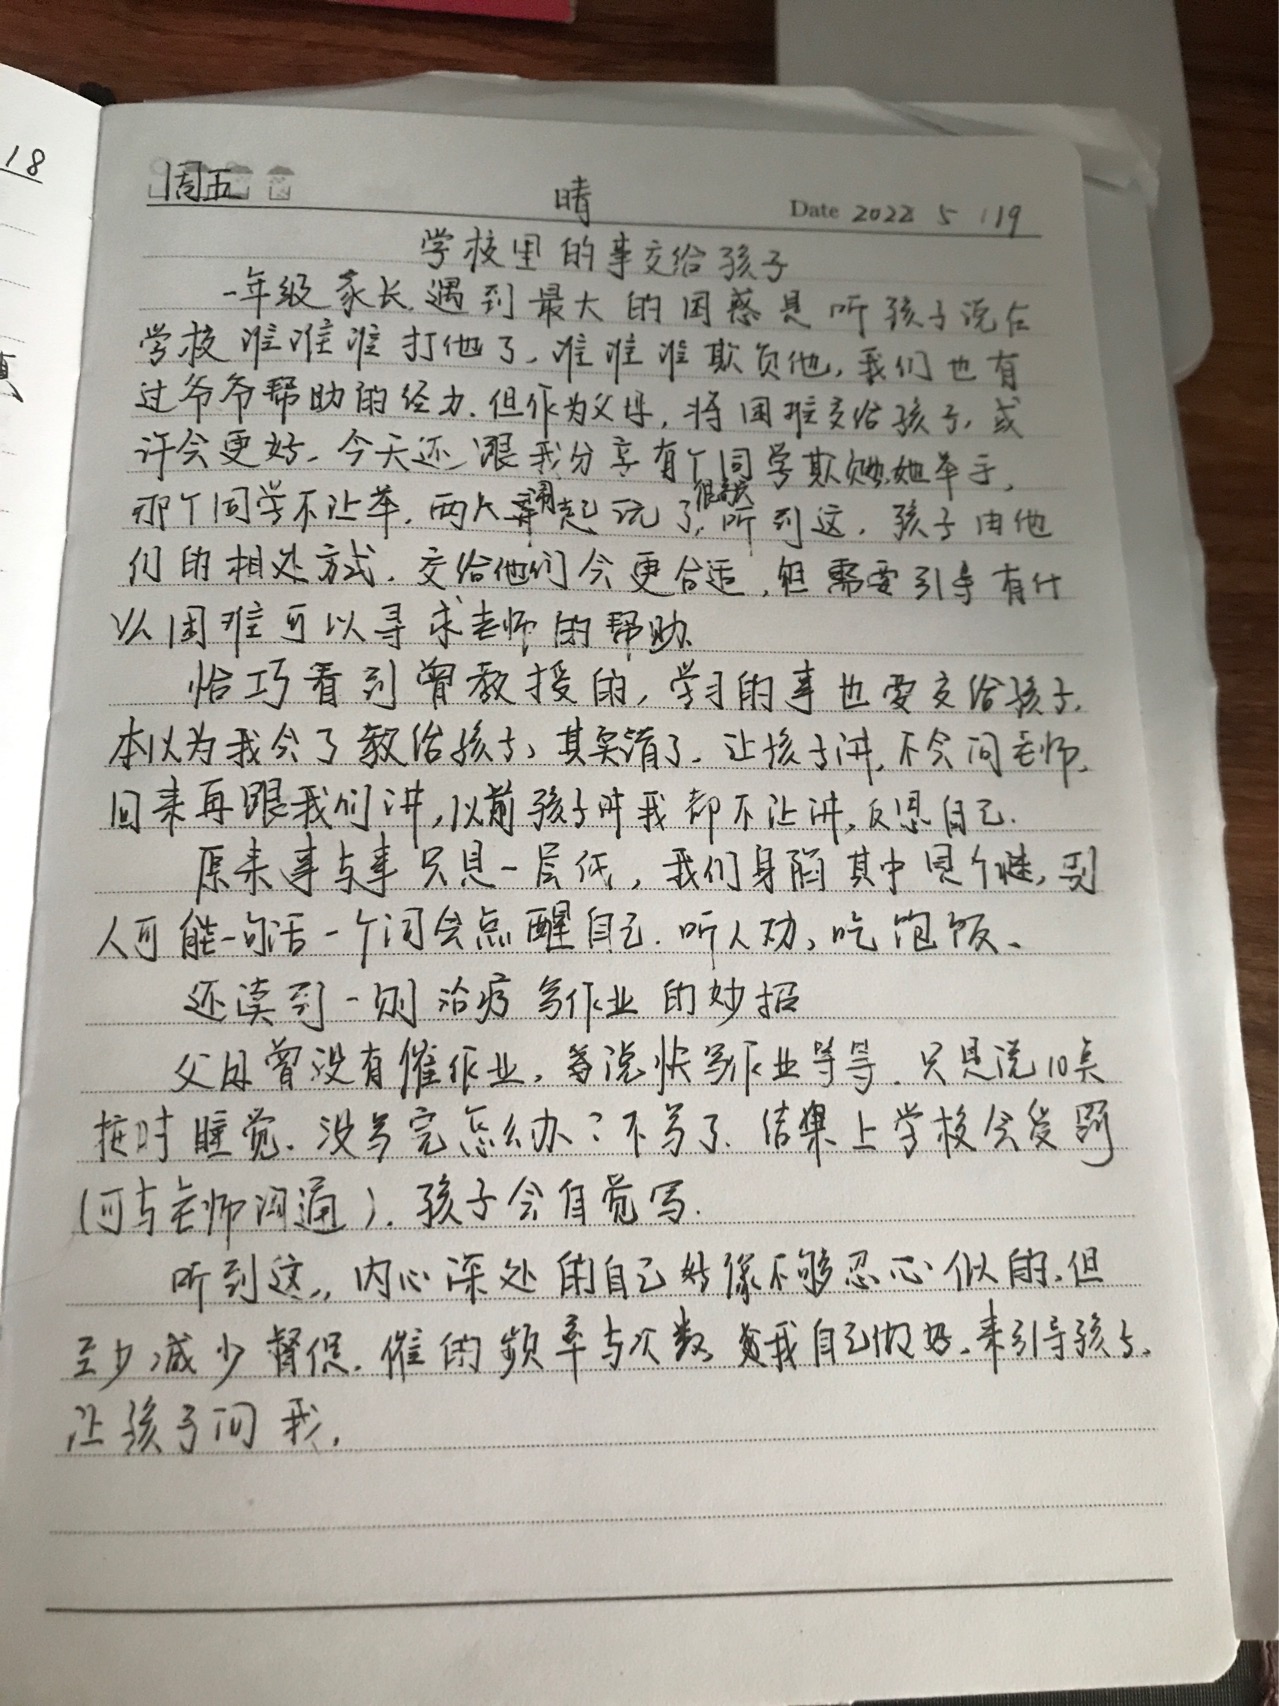 18
周五 晴 Date 2022 5 19
学校里的事交给孩子
一年级家长遇到最大的困惑是听孩子说在
学校谁谁谁打他了,谁谁谁欺负他,我们也有
过爷爷帮助的经力.但作为父母,将困难交给孩子,或
许会更好.今天还跟我分享有个同学欺负她,她举手,
那个同学不让举,两人一起玩了,听到这,孩子由他
们的相处方式.交给他们会更合适,但需要引导有什
么困难可以寻求老师的帮助.
恰巧看到曾教授的,学习的事也要交给孩子.
本以为我会了教给孩子,其实错了.让孩子讲,不会问老师,
回来再跟我们讲,以前孩子讲我都不让讲,反思自己.
原来事与事只是一层纸,我们身陷其中是个迷,到
人可能一句话一个词会点醒自己.听人劝,吃饱饭、
还读到一则治疗写作业的妙招
父母曾没有催作业,等说快写作业等等.只是说10点
按时睡觉.没写完怎么办?不写了.结果上学校会受罚
(可与老师沟通).孩子会自觉写.
听到这,,内心深处的自己好像不够忍心似的,但
至少减少督促.催的频率与次数 我自己做好.来引导孩子,
让孩子问我,